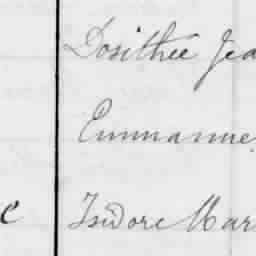 Dosithée Jea
Emmanue
c Isidore Mar